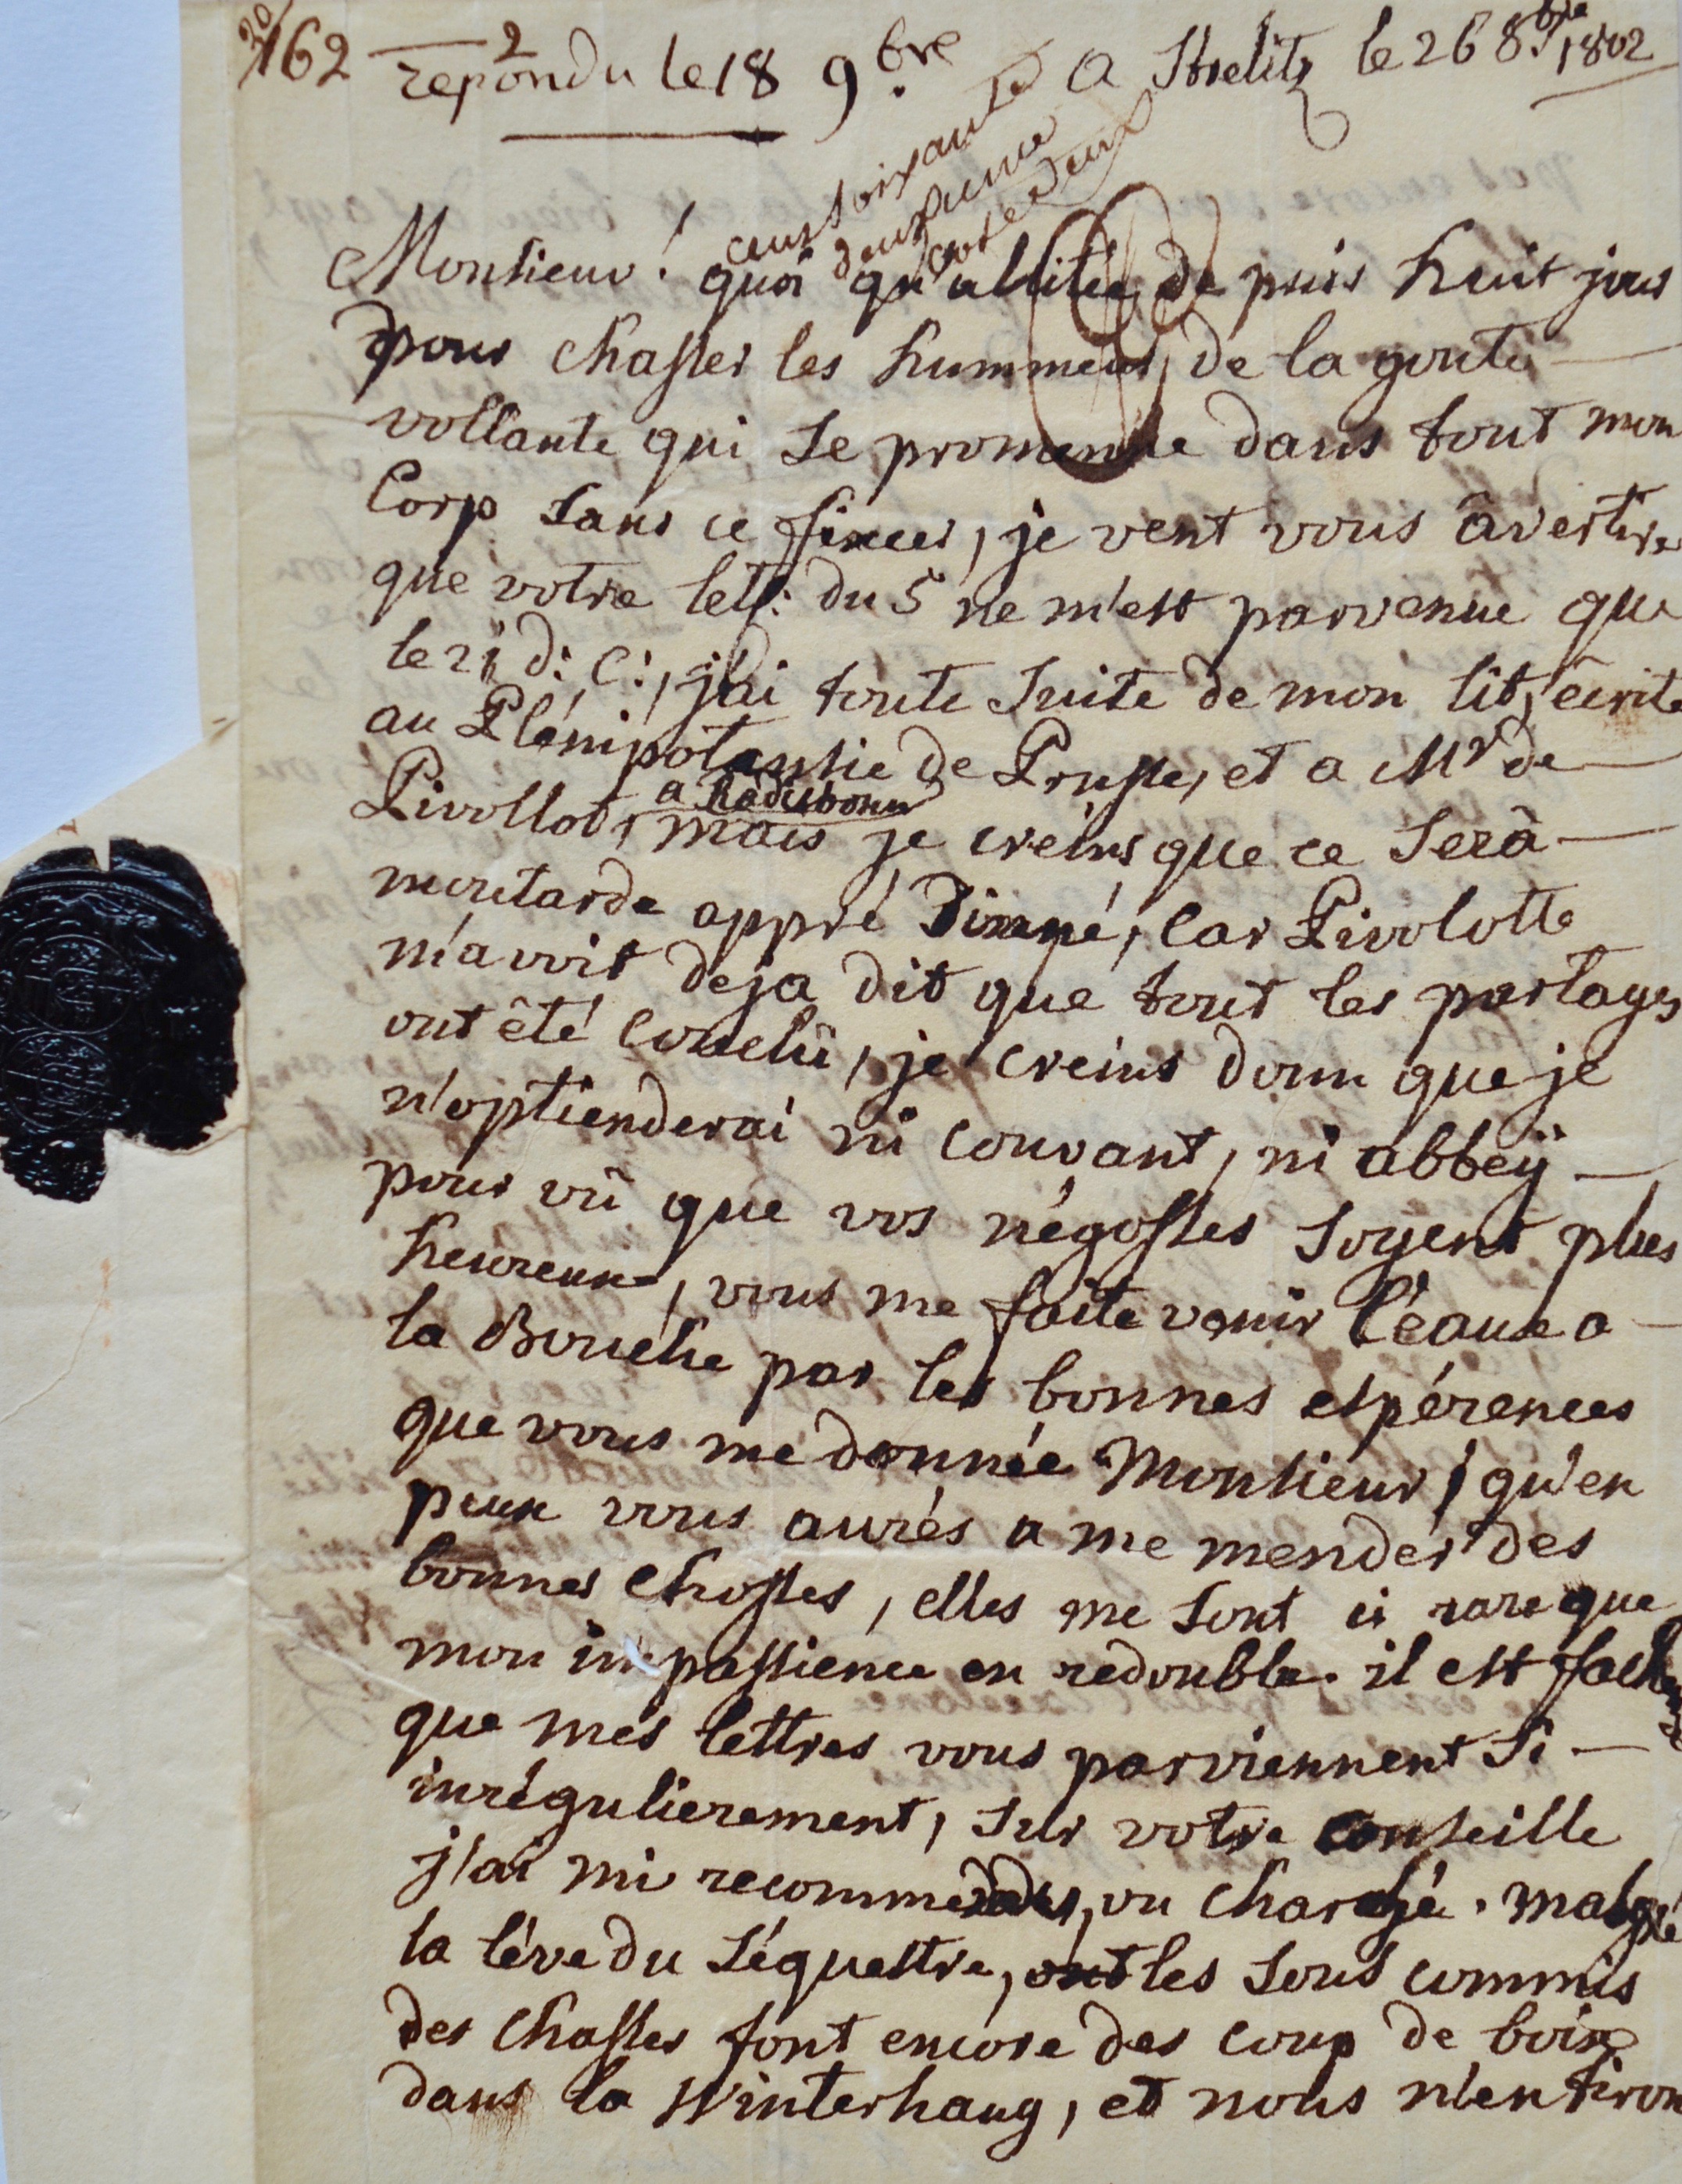 162
2
repondu le 18 9.bre
a Strelitz le 26 8.bre 1802
cent soixante
deux piece
cote deux
Monsieur! quoi qu'allitée de puis huit jous
pour chasser les hummeurs de la goute
vollante qui se promenne dans tout mon
Corp sans ce fixer, je vent vous âvertire
que votre lett: du 5 ne m'est parvenue que
le 21 d: C:, j'ai toute suite de mon lit, ecrite
au Plénipotansie de Prusse, et a Mr de
Pivollot, a Radisbonne mais je creins que ce serâ
moutarde appré Dinné, Car Pivolotte
m'avoit deja dit que tout les partages
ont êté Conclû, je creins donn que je
n'optienderai ni couvant, ni abbeÿ
pour vû que vos négosses soyent plus
heureux, vous me faite venir l'éaux a
la Bouche par les bonnes espérences
que vous me donnée Monsieur, qu'en
peux vous aurés a me mender des
bonnes chosses, elles me sont si rare que
mon impassience en redouble. il est facheux
que mes lettres vous parviennent si
inrégulierement, sur votre conseille
j'ai mi recommender, ou Chargé. malgré
la léve du séquestre, les sous commis
des chasses font encore des coup de bois
dans la Winterhaug, et nous n'en tiron